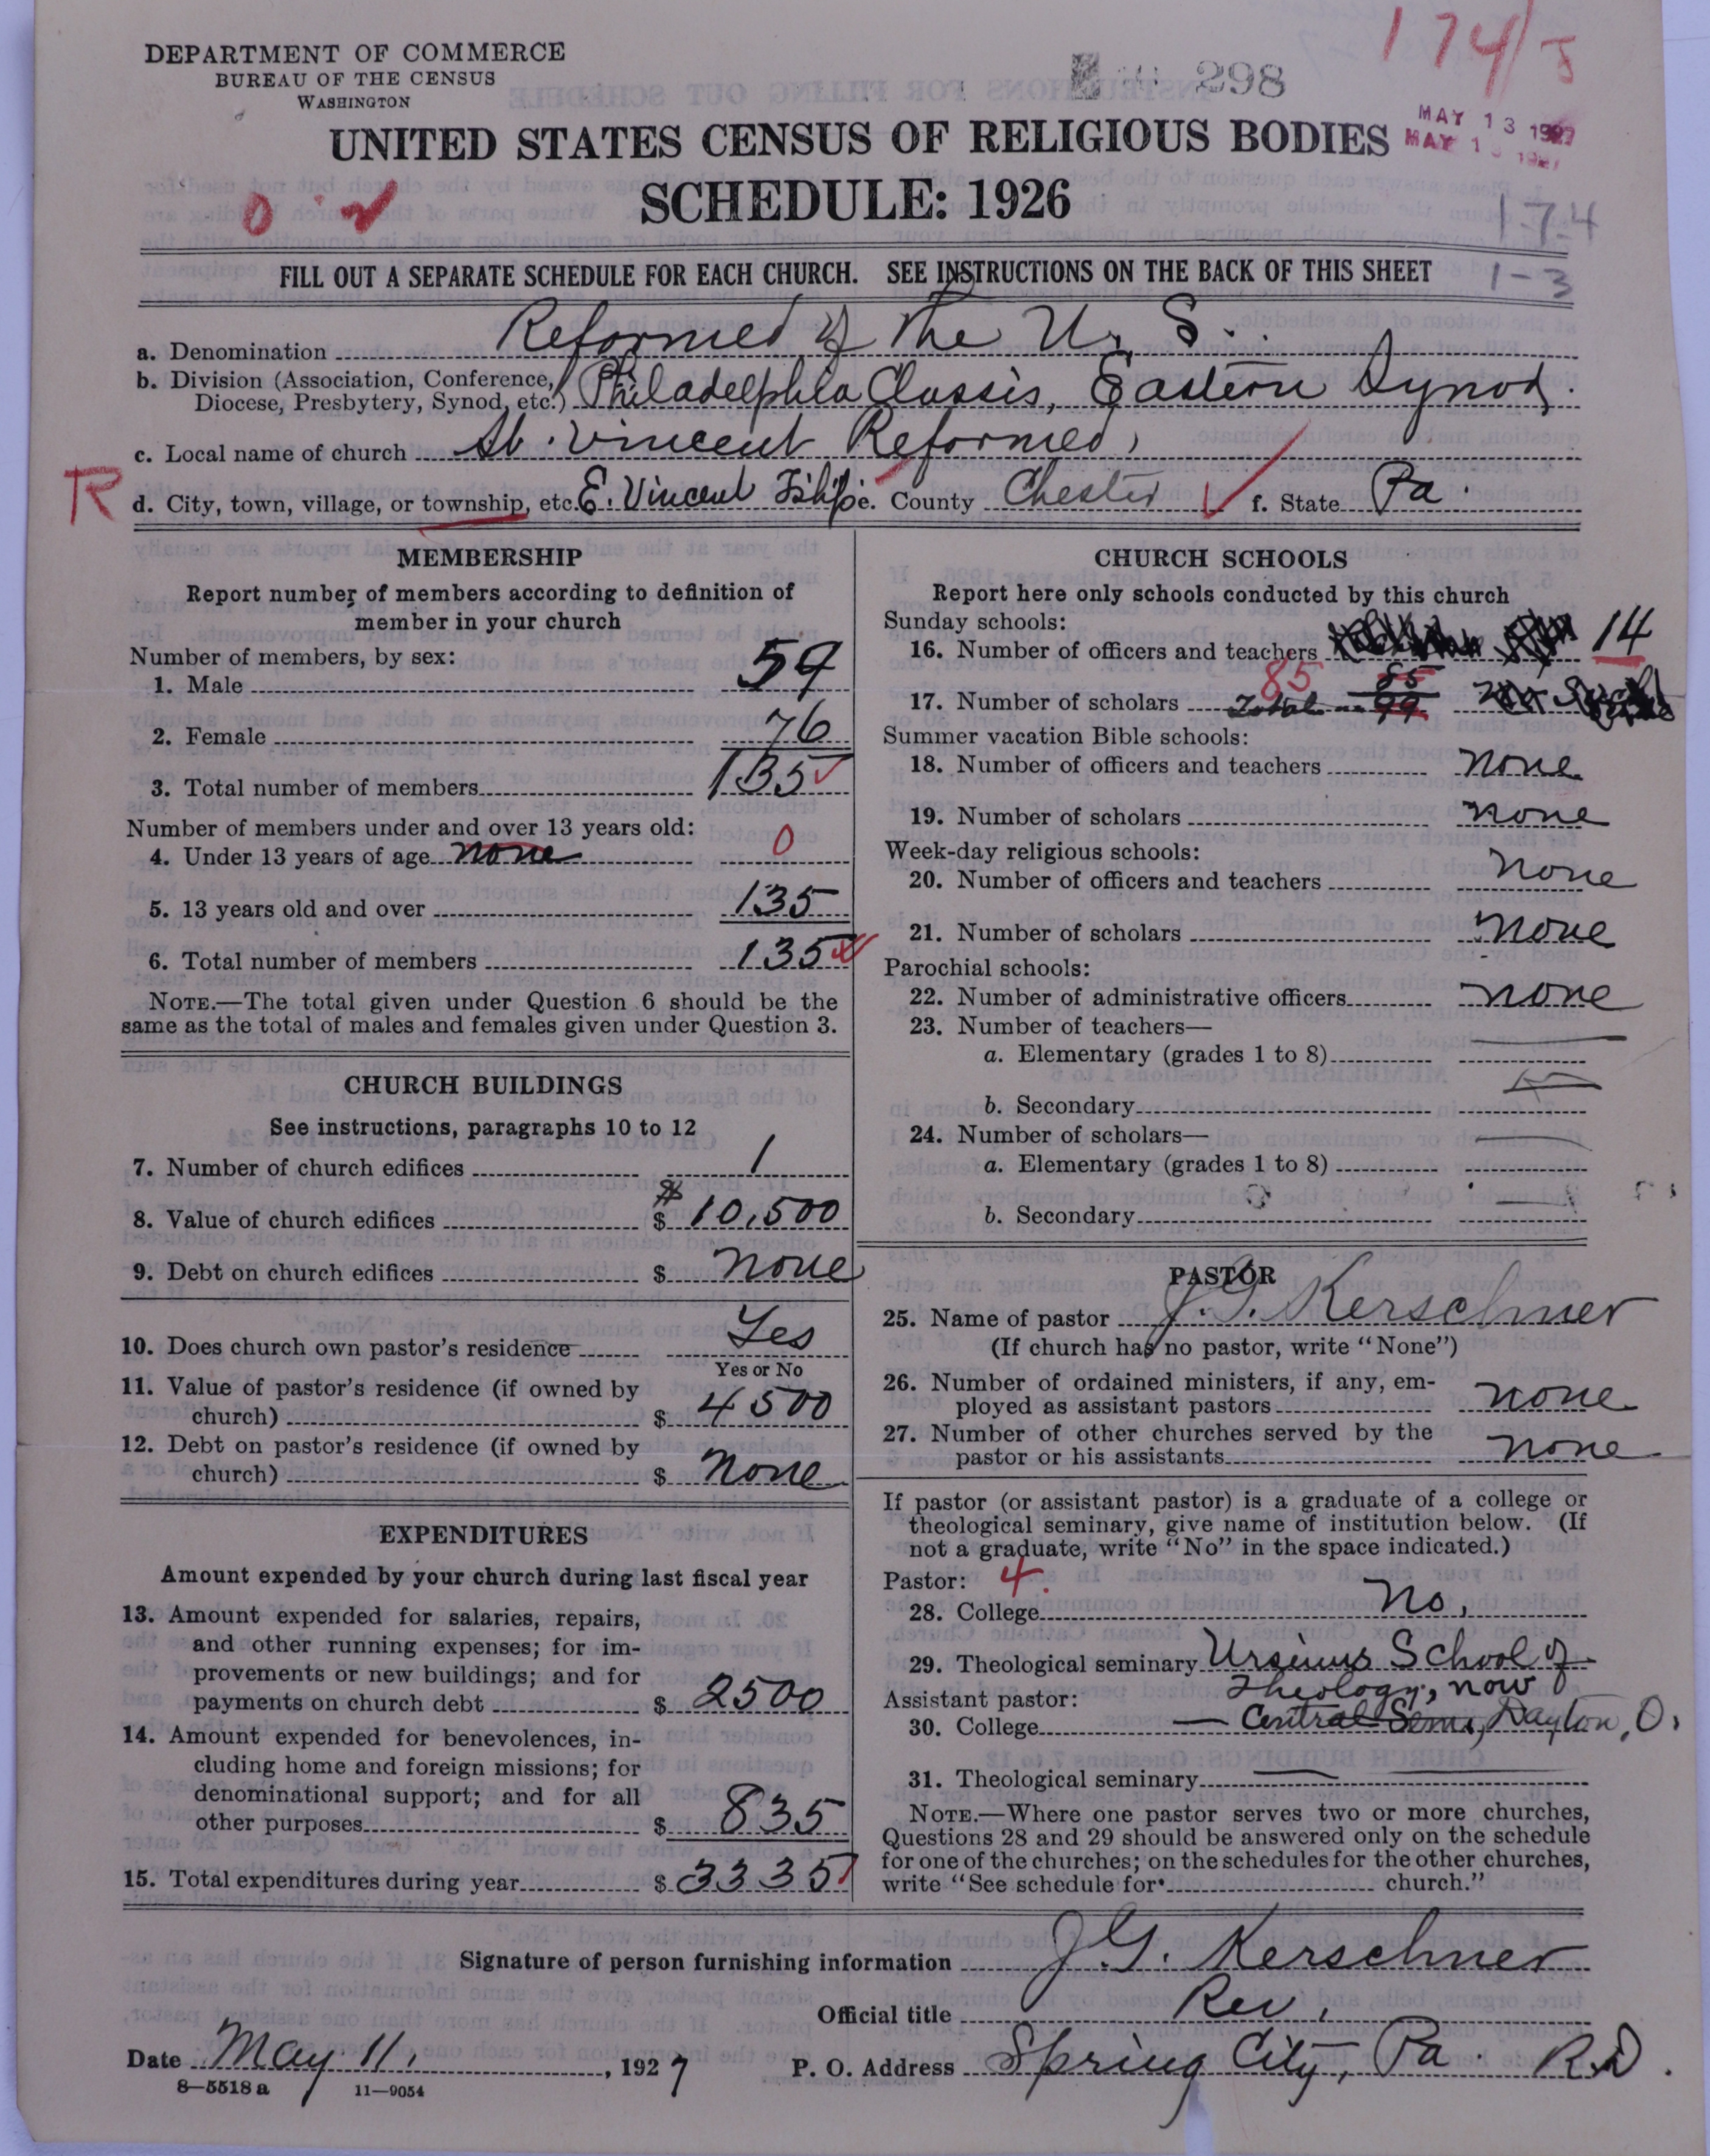 174/5
DEPARTMENT OF COMMERCE
BUREAU OF THE CENSUS
WASHINGTON
298
MAY 13 1927
MAY 1 1927
UNITED STATES CENSUS OF RELIGIOUS BODIES
SCHEDULE: 1926
174
FILL OUT A SEPARATE SCHEDULE FOR EACH CHURCH. SEE INSTRUCTIONS ON THE BACK OF THIS SHEET
1-3
a. Denomination Reformed of the U. S.
b. Division (Association, Conference,
Diocese, Presbytery, Synod, etc.) Philadelphia Classis, Eastern Synod.
c. Local name of church St. Vincent Reformed,
R
d. City, town, village, or township, etc. E. Vincent e. County Chester f. State Pa.
MEMBERSHIP
Report number of members according to definition of
member in your church
Number of members, by sex:
1. Male 59
2. Female 76
3. Total number of members 135
Number of members under and over 13 years old:
4. Under 13 years of age none 0
5. 13 years old and over 135
6. Total number of members 135
NOTE.—The total given under Question 6 should be the
same as the total of males and females given under Question 3.
CHURCH BUILDINGS
See instructions, paragraphs 10 to 12
7. Number of church edifices 1
8. Value of church edifices $ 10,500
9. Debt on church edifices $ none
10. Does church own pastor's residence Yes
Yes or No
11. Value of pastor's residence (if owned by
church) $ 4500
12. Debt on pastor's residence (if owned by
church) $ none
EXPENDITURES
Amount expended by your church during last fiscal year
13. Amount expended for salaries, repairs,
and other running expenses; for im-
provements or new buildings; and for
payments on church debt $ 2500
14. Amount expended for benevolences, in-
cluding home and foreign missions; for
denominational support; and for all
other purposes $ 835
15. Total expenditures during year $ 3335
CHURCH SCHOOLS
Report here only schools conducted by this church
Sunday schools:
16. Number of officers and teachers 14
85
17. Number of scholars Total 99
Summer vacation Bible schools:
18. Number of officers and teachers none
19. Number of scholars none
Week-day religious schools:
20. Number of officers and teachers none
21. Number of scholars none
Parochial schools:
22. Number of administrative officers none
23. Number of teachers—
a. Elementary (grades 1 to 8)
b. Secondary
24. Number of scholars—
a. Elementary (grades 1 to 8)
b. Secondary
PASTOR
25. Name of pastor J. G. Kerschner
(If church has no pastor, write "None")
26. Number of ordained ministers, if any, em-
ployed as assistant pastors none
27. Number of other churches served by the
pastor or his assistants none
If pastor (or assistant pastor) is a graduate of a college or
theological seminary, give name of institution below. (If
not a graduate, write "No" in the space indicated.)
Pastor: 4
28. College No,
29. Theological seminary Ursinus School of
Theology, now
Assistant pastor:
30. College — Central Sem., Dayton, O.
31. Theological seminary
NOTE.—Where one pastor serves two or more churches,
Questions 28 and 29 should be answered only on the schedule
for one of the churches; on the schedules for the other churches,
write "See schedule for church."
Signature of person furnishing information J. G. Kerschner
Official title Rev.
Date May 11, 1927 P. O. Address Spring City, Pa. R.D.
8—5518 a 11—9054